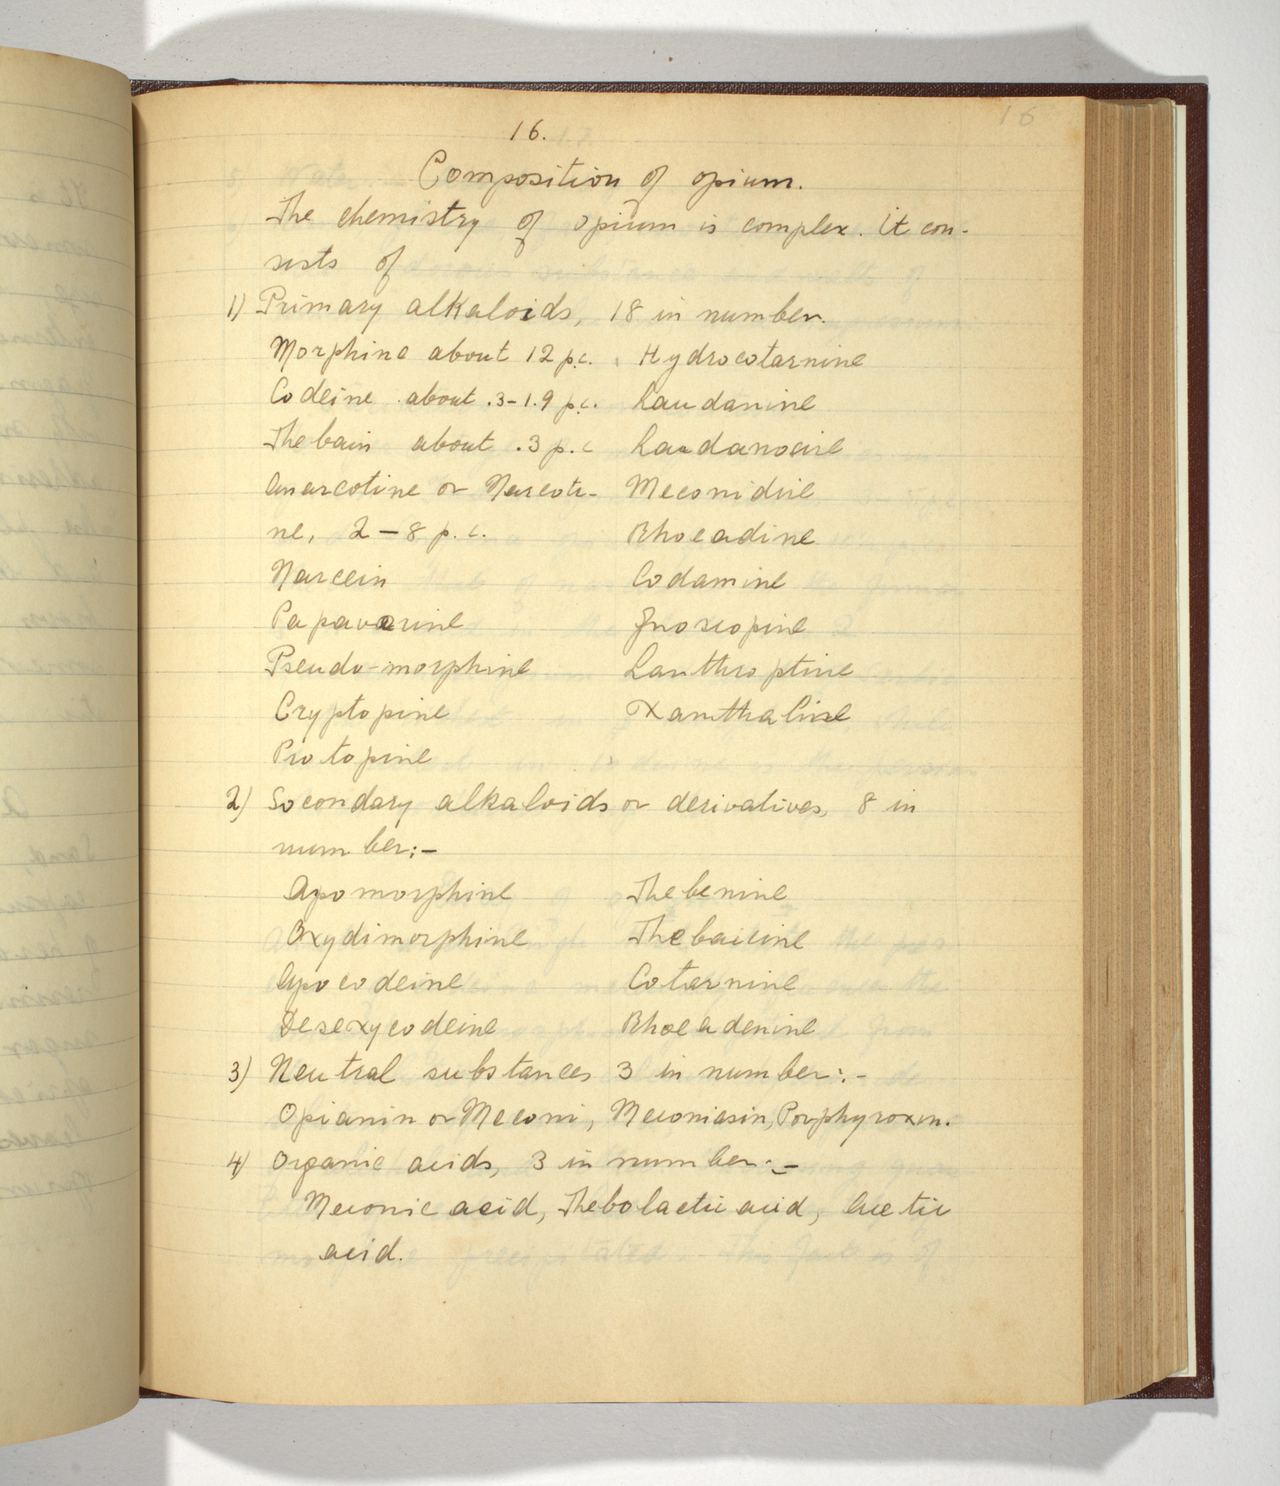 16
16.
Composition of opium.
The chemistry of opium is complex. It con-
sists of
1) Primary alkaloids, 18 in number.
Morphine about 12 p.c. Hydrocotarnine
Codeine about .3-1.9 p.c. Laudanine
Thebain about .3 p.c Laudanosine
Anarcotine or Narcoti- Meconidine
ne, 2-8 p.c. Rhoeadine
Narcein Codamine
Papaverine Gnoscopine
Pseudo-morphine Lanthroptine
Cryptopine Xanthaline
Protopine
2) Secondary alkaloids or derivatives, 8 in
number:-
Apomorphine Thebenine
Oxydimorphine Thebaicine
Apocodeine Cotarnine
Desoxycodeine Rhoeadenine
3) Neutral substances 3 in number:-
Opianin or Meconi, Meconiasin, Porphyroxin.
4) Organic acids, 3 in number:-
Meconic acid, Thebolactic acid, Acetic
acid.